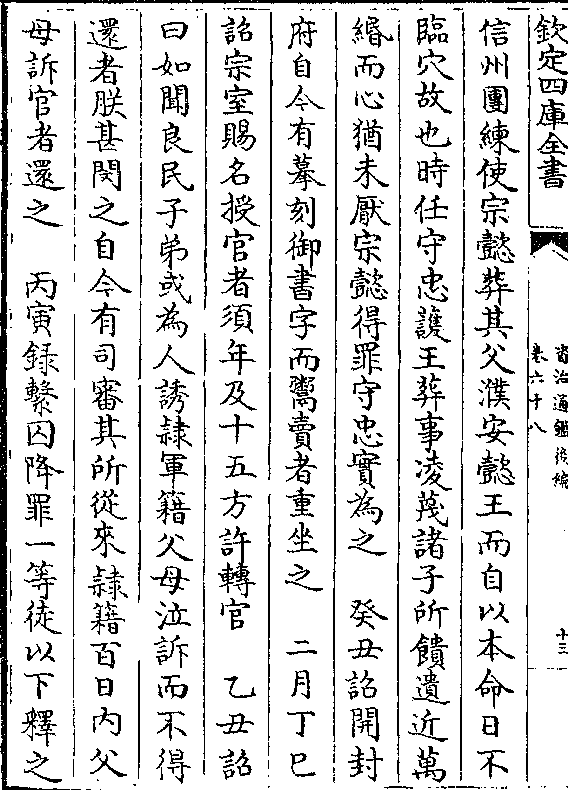 欽定四庫全書
資治通鑑後編
卷六十八
十三
信州團練使宗懿葬其父濮安懿王而自以本命日不
臨穴故也時任守忠護王葬事凌蔑諸子所饋遺近萬
緡而心猶未厭宗懿得罪守忠實為之　癸丑詔開封
府自今有摹刻御書字而鬻賣者重坐之　二月丁巳
詔宗室賜名授官者須年及十五方許轉官　乙丑詔
曰如聞良民子弟或為人誘隷軍籍父母泣訴而不得
還者朕甚閔之自今有司審其所從來隷籍百日内父
母訴官者還之　丙寅錄繫囚降罪一等徒以下釋之